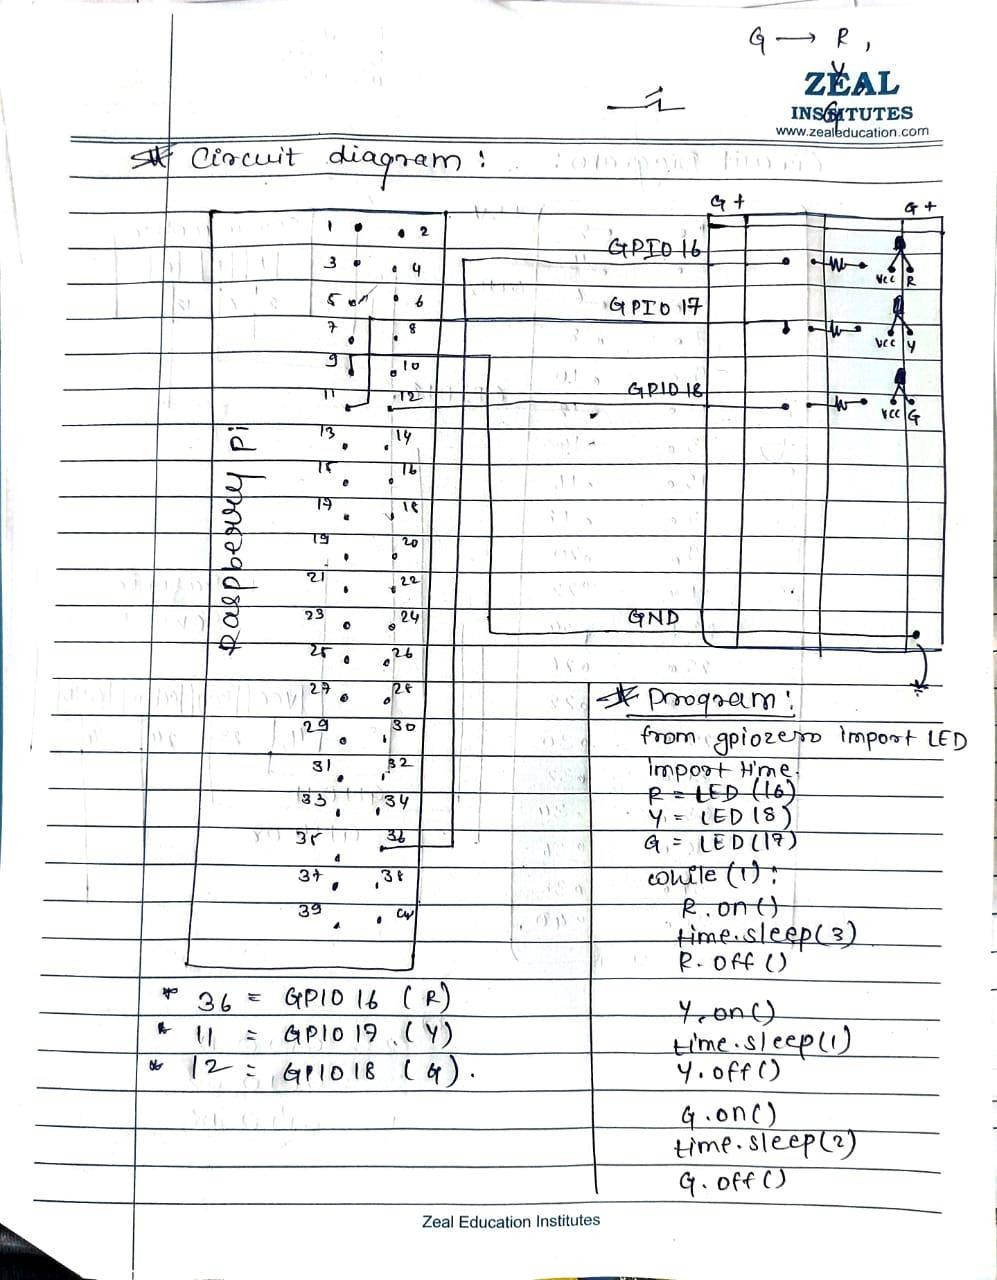 G → R,
Y
G
ZEAL
INSTITUTES
www.zealeducation.com
* Circuit diagram :
G +
G +
1 2
3 4
5 6
7 8
9 10
11 12
13 14
15 16
17 18
19 20
21 22
23 24
25 26
27 28
29 30
31 32
33 34
35 36
37 38
39 40
Raspberry Pi
GPIO 16
Vcc R
GPIO 17
Vcc Y
GPIO 18
Vcc G
GND
* 36 = GPIO 16 (R)
* 11 = GPIO 17 (Y)
* 12 = GPIO 18 (G).
* Program :
from gpiozero import LED
import time.
R = LED (16)
Y = LED 18)
G = LED (17)
while (1) :
R.on()
time.sleep(3)
R.off()
Y.on()
time.sleep(1)
Y.off()
G.on()
time.sleep(2)
G.off()
Zeal Education Institutes